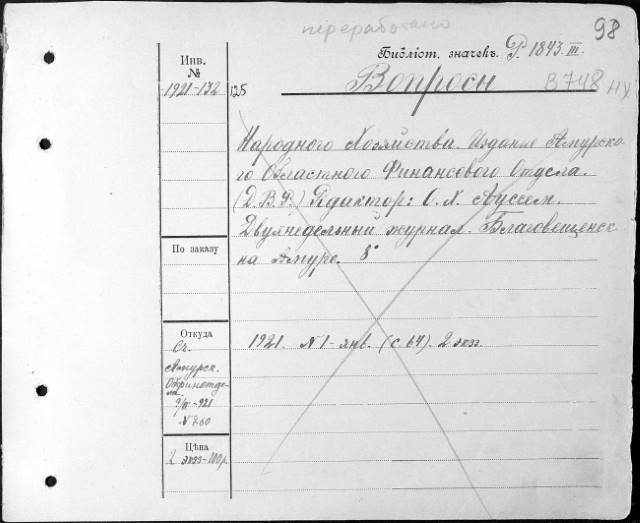 переработано
98
Библіот. значекъ. P. 1843. III.
Инв.
№
1921-132 125
Вопросы
В 748 НХ
Народного Хозяйства. Издание Амурско-
го Областного Финансового Отдела.
(Д.В.Р.) Редактор: О. Х. Ауссем.
Двухнедельный журнал. Благовещенск
на Амуре. 8°
По заказу
Откуда
1921. N 1 - янв. (с. 64). 2 экз.
Амурск.
Обфинотде-
ла.
-921
N 260
Цѣна
2 экз-100 р.